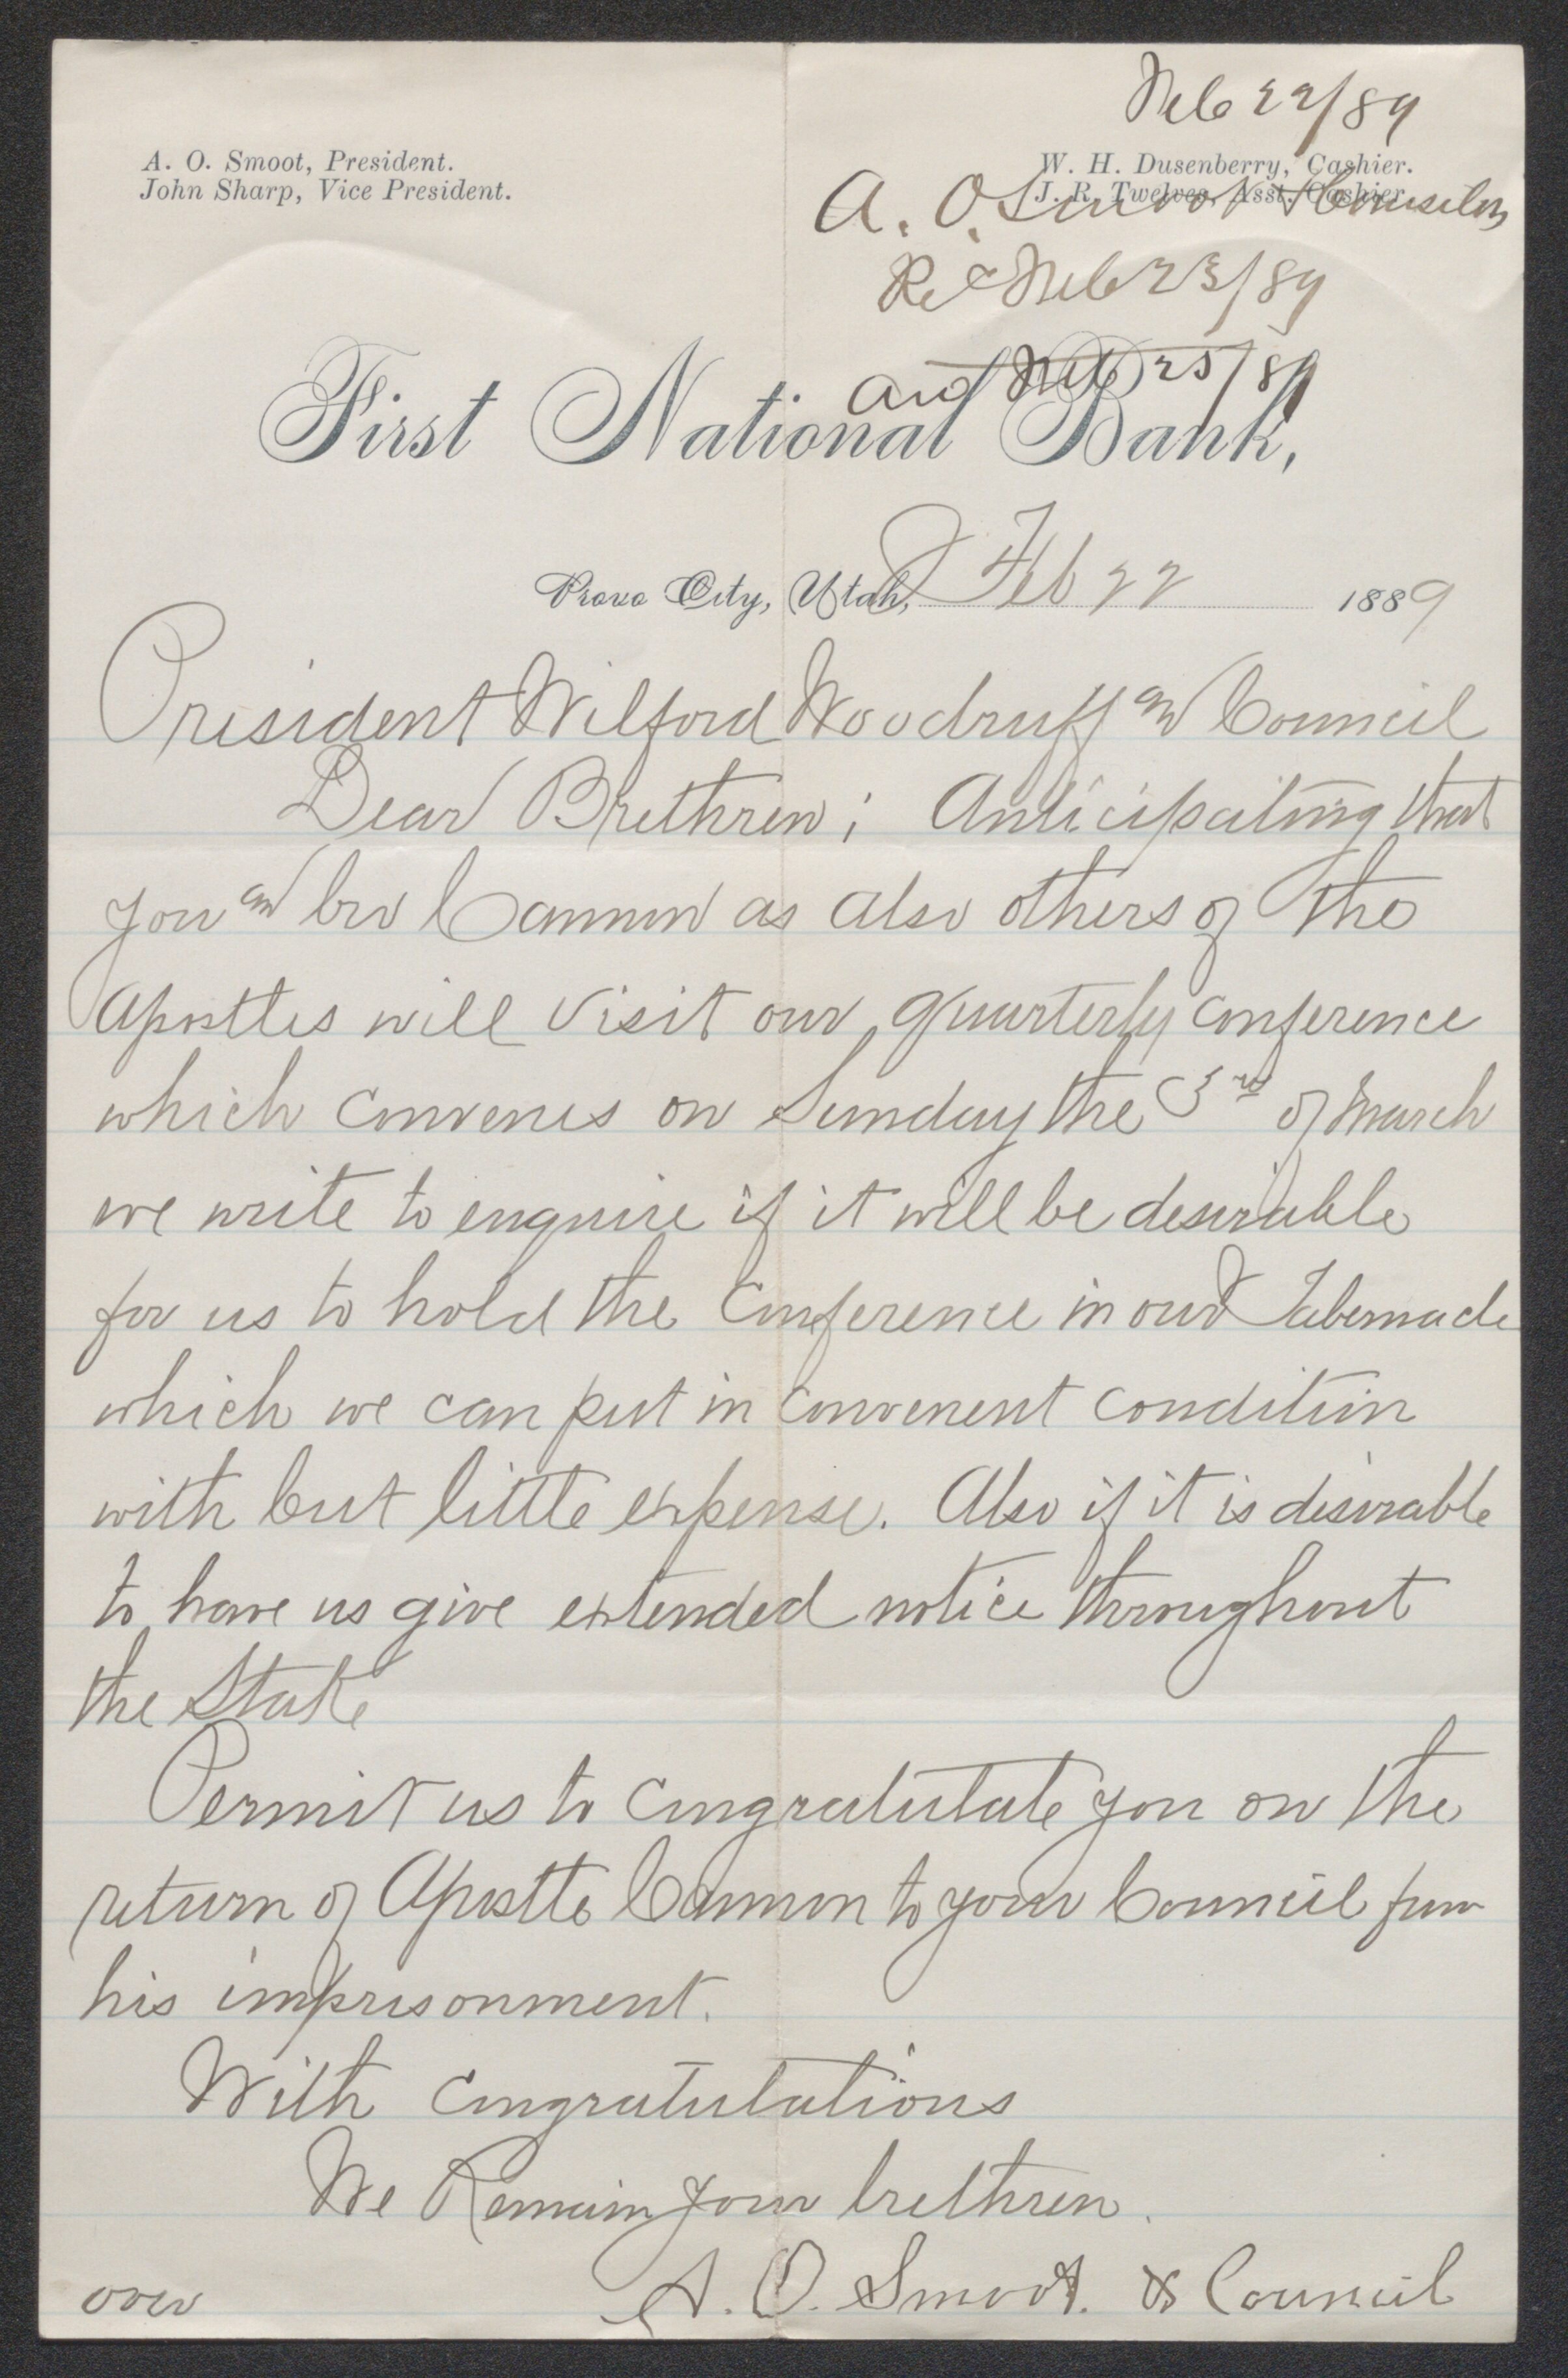 Feb 22/89
A. O. Smoot, President.
W. H. Dusenberry, Cashier.
John Sharp, Vice President.
J. R. Twelves, Asst. Cashier.
A. O. Smoot & Counselors
Rec Feb 23/89
and Feb 25/89
First National Bank,
Provo City, Utah, Feb 22 1889
President Wilford Woodruff and Council
Dear Brethren; Anticipating that
you and bro Cannon as also others of the
Apostles will visit our quarterly conference
which convenes on Sunday the 3rd of March
we write to enquire if it will be desirable
for us to hold the Conference in our Tabernacle
which we can put in convenent condition
with but little expense. Also if it is desirable
to have us give extended notice throughout
the Stake
Permit us to congratulate you on the
return of Apostle Cannon to your Council from
his imprisonment.
With congratulations
We Remain your brethren.
A. O. Smoot. & Council
over